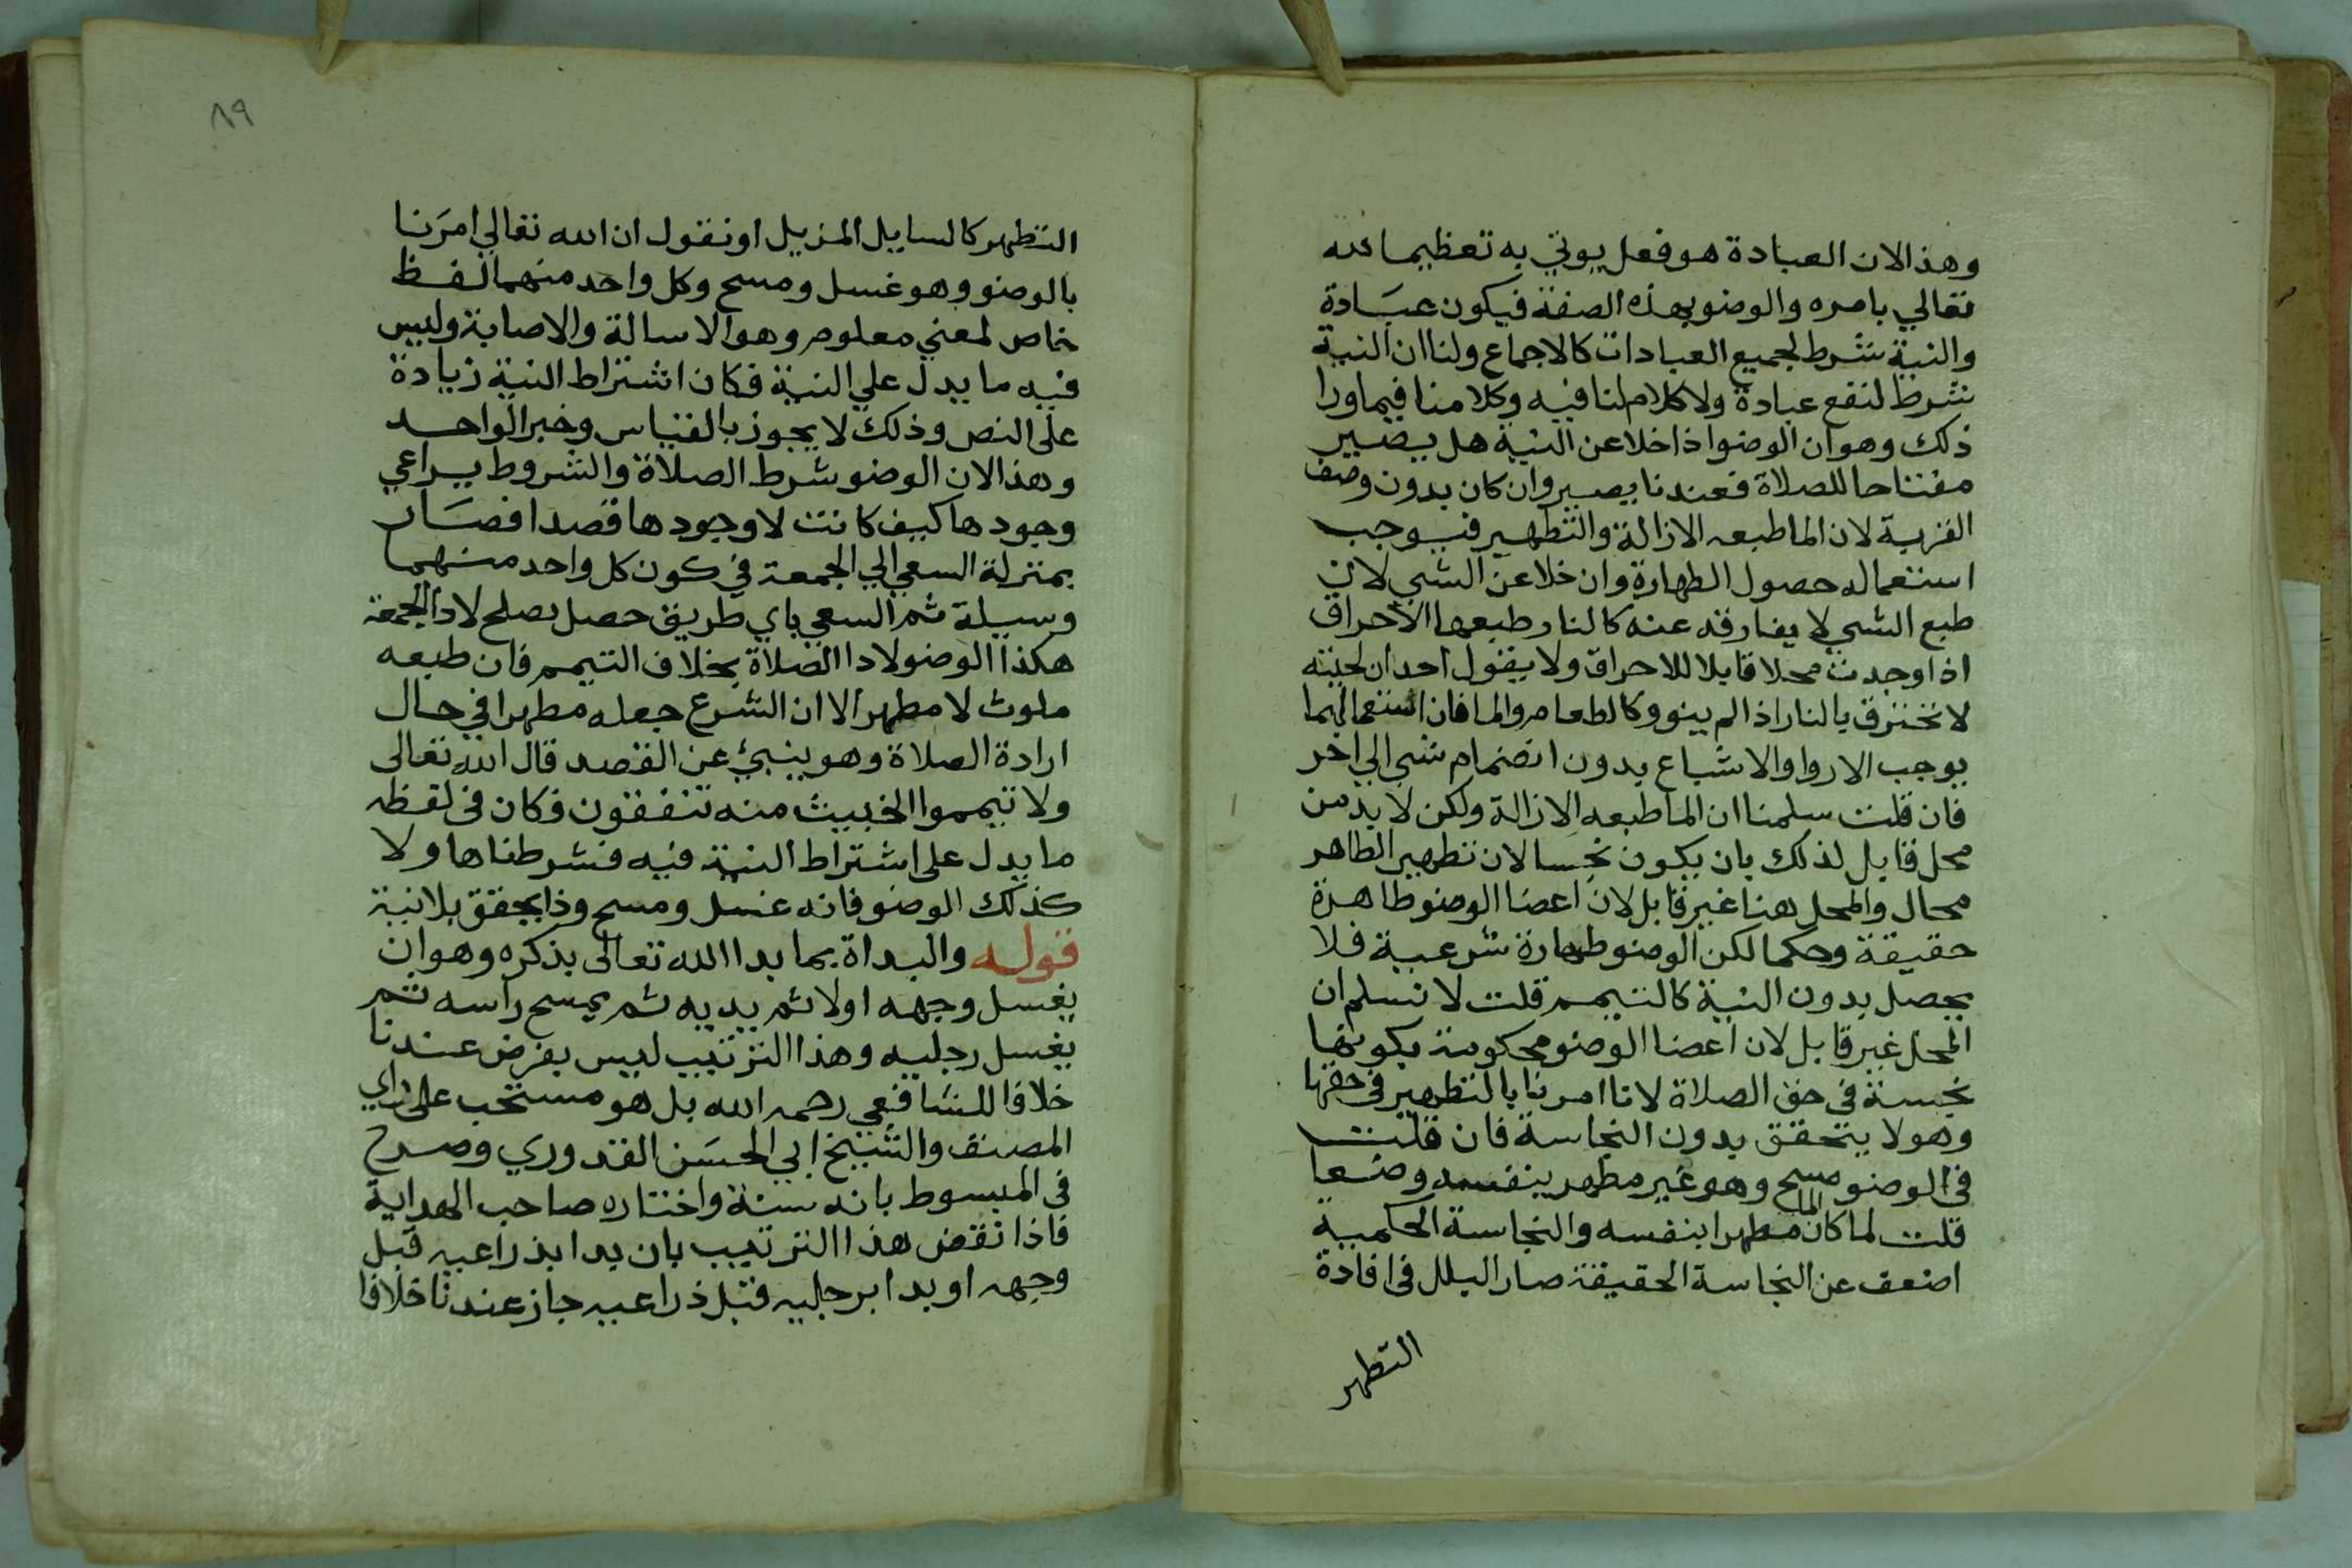 وهذا لان العبادة هو فعل يوتي به تعظيما لله
تعالي بامره والوضو بهذه الصفة فيكون عبَادة
والنية شرط لجميع العبادات كالاجماع ولنا ان النية
شرط لتقع عبادة ولا كلام لنا فيه وكلامنا فيما ورا
ذلك وهو ان الوضو اذا خلا عن النية هل يصير
مفتاحا للصلاة فعندنا يصير وان كان بدون وصف
القربة لان الما طبعه الازالة والتطهير فيوجب
استعماله حصول الطهارة وان خلا عن الشي لان
طبع الشي لا يفارقه عنه كالنار طبعها الاحراق
اذا وجدت محلا قابلا للاحراق ولا يقول احد ان لحيته
لا تحترق بالنار اذا لم ينوو كالطعام والما فان استعمالهما
يوجب الاروا والاشباع بدون انضمام شي الي اخر
فان قلت سلمنا ان الما طبعه الازالة ولكن لا بد من
محل قابل لذلك بان يكون نجسا لان تطهير الطاهر
محال والمحل هنا غير قابل لان اعضا الوضو طاهرة
حقيقة وحكما لكن الوضو طهارة شرعية فلا
يحصل بدون النية كالتيمم قلت لا نسلم ان
المحل غير قابل لان اعضا الوضو محكومة بكونها
نجسة في حق الصلاة لانا امرنا بالتطهير في حقها
وهو لا يتحقق بدون النجاسة فان قلت
في الوضو مسح وهو غير مطهر بنفسه وضعا
قلت لما كان الما مطهرا بنفسه والنجاسة الحكمية
اضعف عن النجاسة الحقيقة صار البلل في افادة
التطهر
٨٩
التطهر كالسايل المزيل او نقول ان الله تعالي امرَنا
بالوضو وهو غسل ومسح وكل واحد منهما لفظ
خاص لمعني معلوم وهو الاسالة والاصابة وليس
فيه ما يدل علي النية فكان اشتراط النية زيادة
على النص وذلك لا يجوز بالقياس وخبر الواحد
وهذا لان الوضو شرط الصلاة والشروط يراعي
وجودها كيف كانت لا وجودها قصدا فصَار
بمنزلة السعي الي الجمعة في كون كل واحد منهما
وسيلة ثم السعي باي طريق حصل يصلح لادا الجمعة
هكذا الوضو لادا الصلاة بخلاف التيمم فان طبعه
ملوث لا مطهر الا ان الشرع جعله مطهرا في حال
ارادة الصلاة وهو ينبئ عن القصد قال الله تعالى
ولا تيمموا الخبيث منه تنفقون فكان في لفظه
ما يدل على اشتراط النية فيه فشرطناها ولا
كذلك الوضو فانه غسل ومسح وذا يتحقق بلا نية
قوله والبداة بما بدا الله تعالى بذكره وهو ان
يغسل وجهه اولا ثم يديه ثم يمسح راسه ثم
يغسل رجليه وهذا الترتيب ليس بفرض عندنا
خلافا للشافعي رحمه الله بل هو مستحب على راي
المصنف والشيخ ابي الحسَن القدوري وصرح
في المبسوط بانه سنة واختاره صاحب الهداية
فاذا نقض هذا الترتيب بان بدا بذراعيه قبل
وجهه او بدا برجليه قبل ذراعيه جاز عندنا خلافا